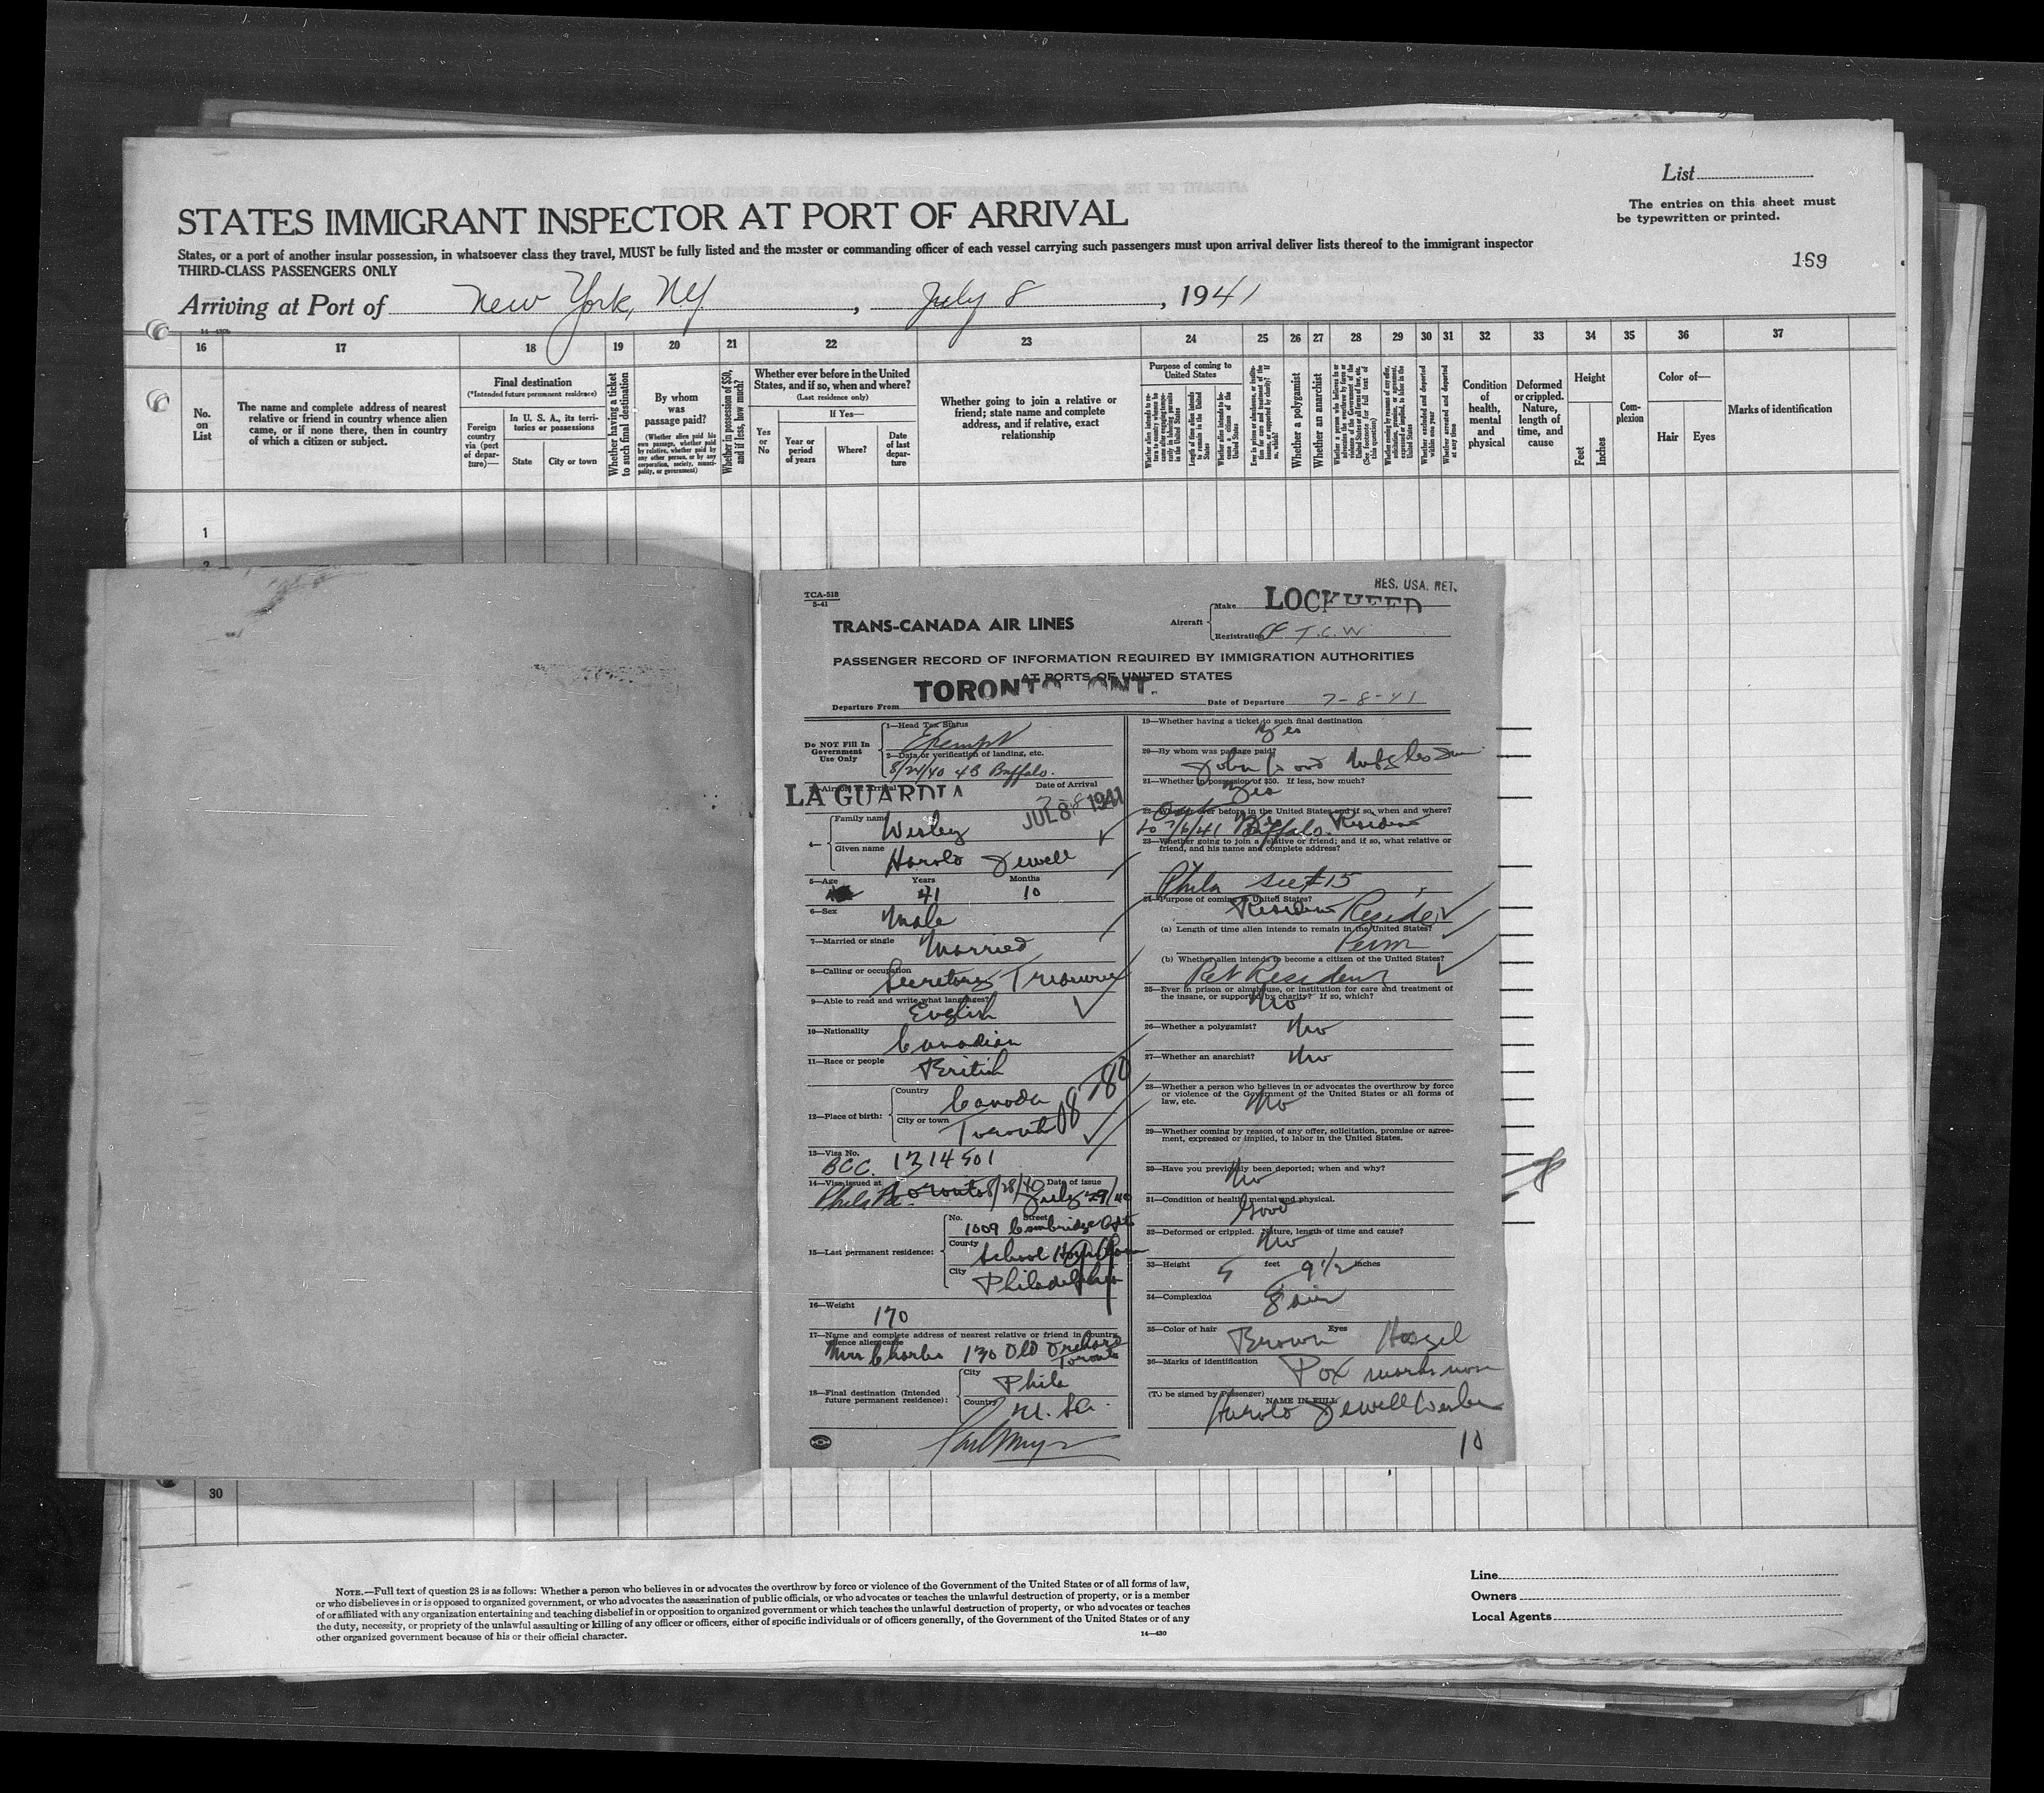 List
The entries on this sheet must
be typewritten or printed.
STATES IMMIGRANT INSPECTOR AT PORT OF ARRIVAL
States, or a port of another insular possession, in whatsoever class they travel, MUST be fully listed and the master or commanding officer of each vessel carrying such passengers must upon arrival deliver lists thereof to the immigrant inspector
THIRD-CLASS PASSENGERS ONLY
169
Arriving at Port of New York, NY, July 8, 1941
16 17 18 19 20 21 22 23 24 25 26 27 28 29 30 31 32 33 34 35 36 37
No. on List
The name and complete address of nearest
relative or friend in country whence alien
came, or if none there, then in country
of which a citizen or subject.
Final destination
(*Intended future permanent residence)
Foreign country via (port of departure)—
In U. S. A., its territories or possessions
State
City or town
Whether having a ticket to such final destination
By whom was passage paid?
(Whether alien paid his own passage, whether paid by relative, whether paid by any other person, or by any corporation, society, municipality, or government)
Whether in possession of $50, and if less, how much?
Whether ever before in the United
States, and if so, when and where?
(Last residence only)
Yes or No
If Yes—
Year or period of years
Where?
Date of last departure
Whether going to join a relative or
friend; state name and complete
address, and if relative, exact
relationship
Purpose of coming to United States
Whether a polygamist
Whether an anarchist
Condition of health, mental and physical
Deformed or crippled. Nature, length of time, and cause
Height
Feet
Inches
Complexion
Color of—
Hair
Eyes
Marks of identification
1
TCA-518
5-41
RES. USA. RET.
TRANS-CANADA AIR LINES
Aircraft
Make LOCKHEED
Registration CF T.C.W
PASSENGER RECORD OF INFORMATION REQUIRED BY IMMIGRATION AUTHORITIES
AT PORTS OF UNITED STATES
Departure From TORONTO ONT.
Date of Departure 7-8-41
Do NOT Fill In
Government
Use Only
1—Head Tax Status
Exempt
2—Date or verification of landing, etc.
8/24/40 43 Buffalo.
3—Airport of Arrival LA GUARDIA
Date of Arrival JUL 8 1941
4—
Family name Wesley
Given name Harold Jewell
5—Age Years 41 Months 10
6—Sex Male
7—Married or single Married
8—Calling or occupation Secretary Treasurer
9—Able to read and write what languages?
English
10—Nationality Canadian
11—Race or people British
12—Place of birth:
Country Canada
City or town Toronto
13—Visa No.
BCC. 1314501
14—Visa issued at Date of issue
Phila Pa. Toronto 8/28/40 July 29/40
15—Last permanent residence:
No. Street 1009 Cambridge Apts
County School
City Philadelphia
16—Weight 170
17—Name and complete address of nearest relative or friend in country
whence alien came
Mrs Charles 130 Old Orchard
Toronto
18—Final destination (Intended
future permanent residence):
City Phila
Country U.S.A.
19—Whether having a ticket to such final destination
Yes
20—By whom was passage paid?
21—Whether in possession of $50. If less, how much?
Yes
22—Whether ever before in the United States and if so, when and where?
to 7/6/41 Buffalo. Resident
23—Whether going to join a relative or friend; and if so, what relative or
friend, and his name and complete address?
Phila See #15
24—Purpose of coming to United States?
Reside
(a) Length of time alien intends to remain in the United States?
Perm
(b) Whether alien intends to become a citizen of the United States?
Ret Resident
25—Ever in prison or almshouse, or institution for care and treatment of
the insane, or supported by charity? If so, which?
No
26—Whether a polygamist? No
27—Whether an anarchist? No
28—Whether a person who believes in or advocates the overthrow by force
or violence of the Government of the United States or all forms of
law, etc. No
29—Whether coming by reason of any offer, solicitation, promise or agree-
ment, expressed or implied, to labor in the United States.
30—Have you previously been deported; when and why?
No
31—Condition of health, mental and physical.
Good
32—Deformed or crippled. Nature, length of time and cause?
No
33—Height 5 feet 9 1/2 inches
34—Complexion Fair
35—Color of hair Brown Eyes Hazel
36—Marks of identification Pox marks nose
(To be signed by Passenger)
NAME IN FULL
Harold Jewell Wesley
10
30
NOTE.—Full text of question 28 is as follows: Whether a person who believes in or advocates the overthrow by force or violence of the Government of the United States or of all forms of law,
or who disbelieves in or is opposed to organized government, or who advocates the assassination of public officials, or who advocates or teaches the unlawful destruction of property, or is a member
of or affiliated with any organization entertaining and teaching disbelief in or opposition to organized government or which teaches the unlawful destruction of property, or who advocates or teaches
the duty, necessity, or propriety of the unlawful assaulting or killing of any officer or officers, either of specific individuals or of officers generally, of the Government of the United States or of any
other organized government because of his or their official character.
14—430
Line
Owners
Local Agents